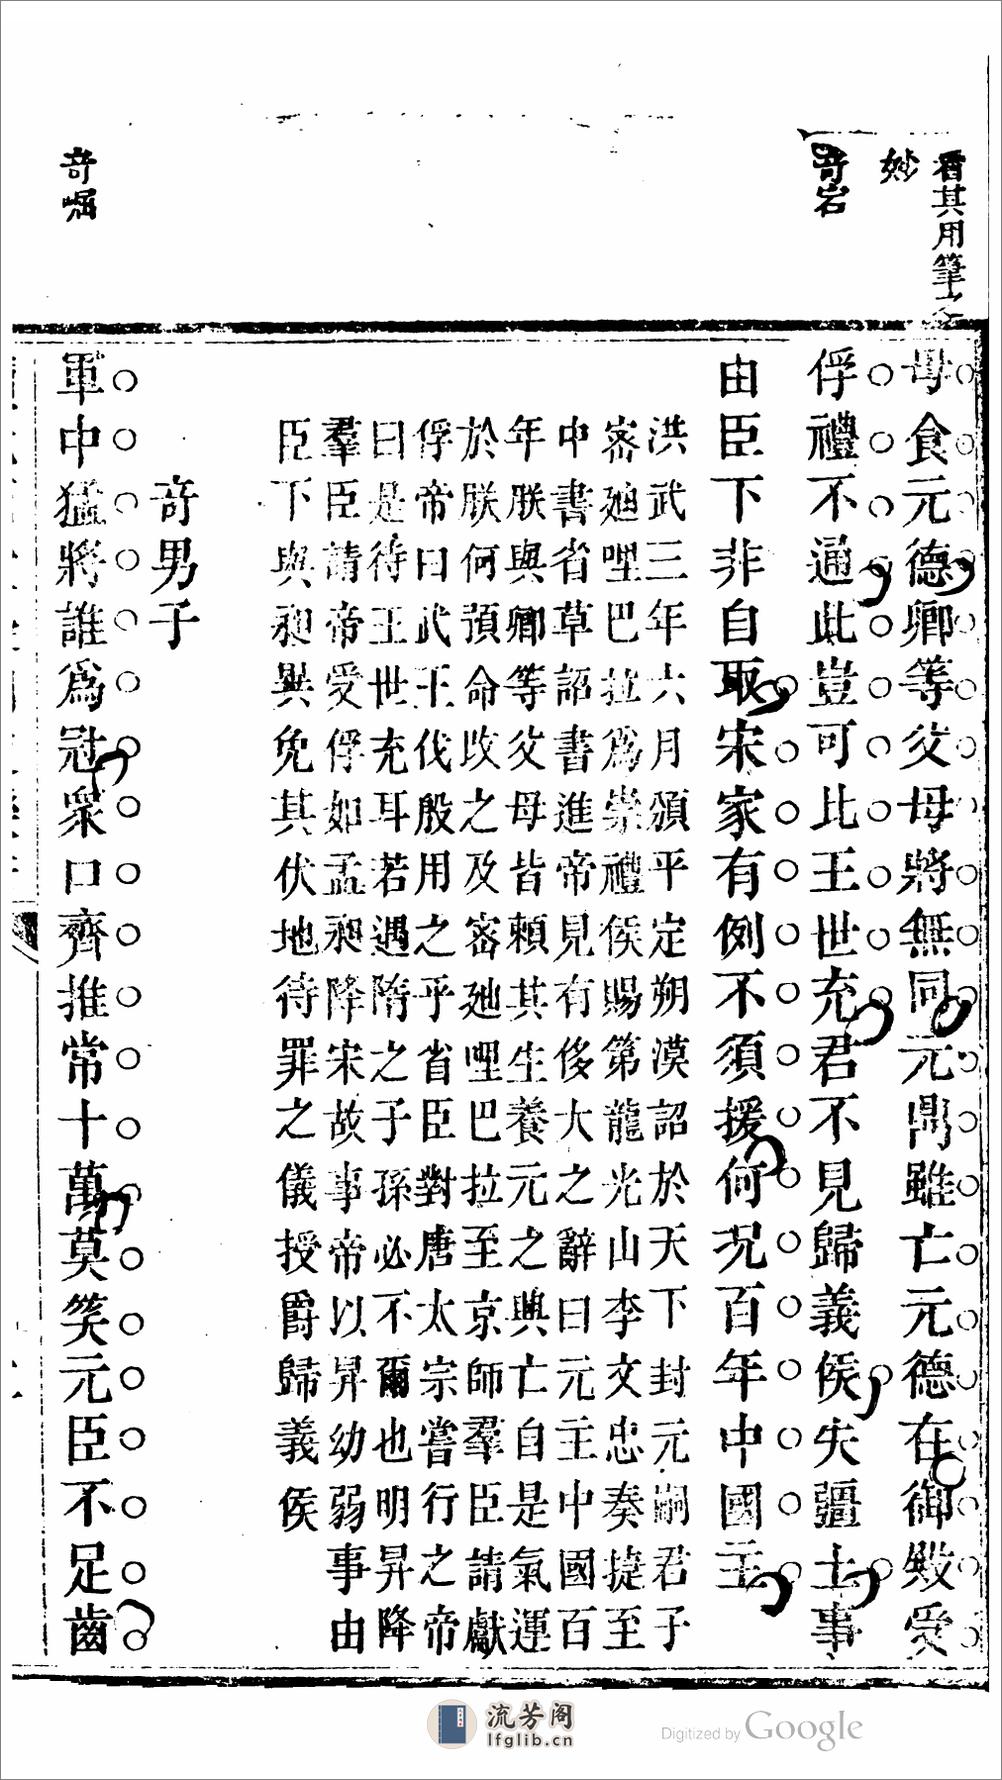 看其用筆之
妙
奇岩
奇崛
母食元德卿等父母將無同元鼎雖亡元德在御毀受
俘禮不通此豈可比王世充君不見歸義侯失疆土事
由臣下非自取宋家有例不須援何況百年中國主
洪武三年六月頒平定朔漠詔於天下封元嗣君子
密廸哩巴拉爲崇禮侯賜第龍光山李文忠奏捷至
中書省草詔書進帝見有侈大之辭曰元主中國百
年朕與卿等父母皆賴其生養元之興亡自是氣運
於朕何預命收之及密廸哩巴拉至京師羣臣請獻
俘帝曰武王伐殷用之乎省臣對唐太宗嘗行之帝
曰是待王世充耳若遇隋之子孫必不爾也明昇降
羣臣請帝受俘如孟昶降宋故事帝以昇幼弱事由
臣下與昶異免其伏地待罪之儀授爵歸義侯
奇男子
軍中猛將誰爲冠衆口齊推常十萬莫笑元臣不足齒
流芳阁
lfglib.cn
Digitized by Google